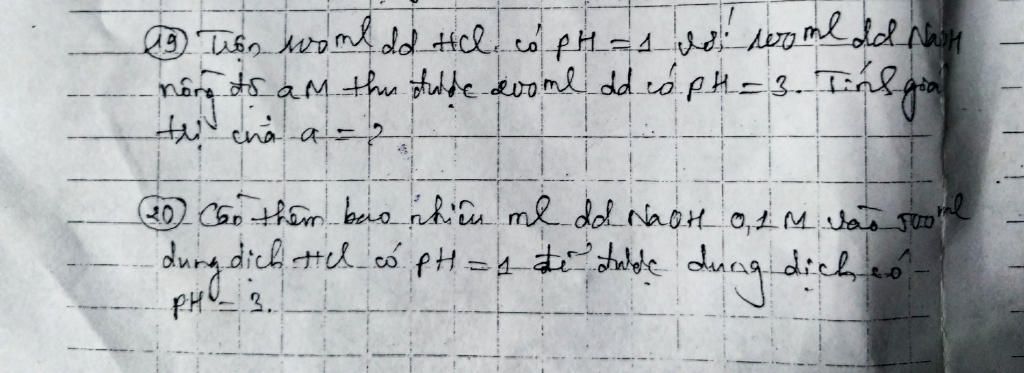 19 Trộn 100ml dd HCl có pH = 1 với 100ml dd NaOH
nồng độ aM thu được 200ml dd có pH = 3. Tính giá
trị của a = ?
20 Cần thêm bao nhiêu ml dd NaOH 0,1M vào 500ml
dung dịch HCl có pH = 1 để được dung dịch có
pH = 3.